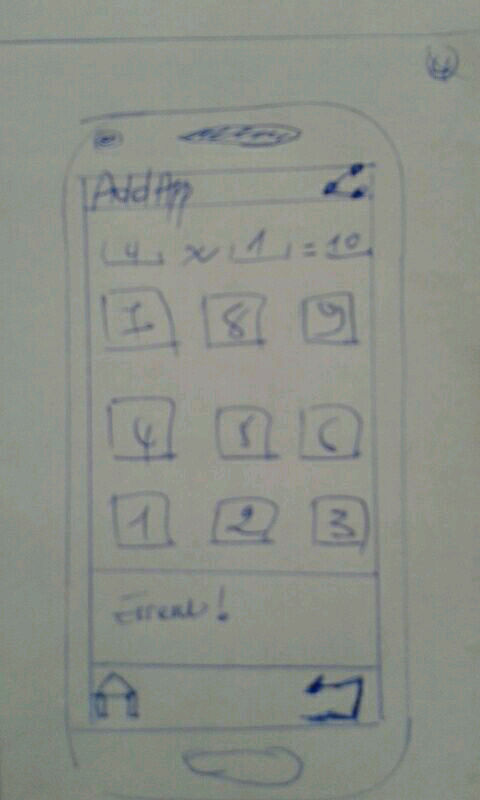 4
AddApp
4 x 1 = 10
7 8 9
4 5 6
1 2 3
Erreur!